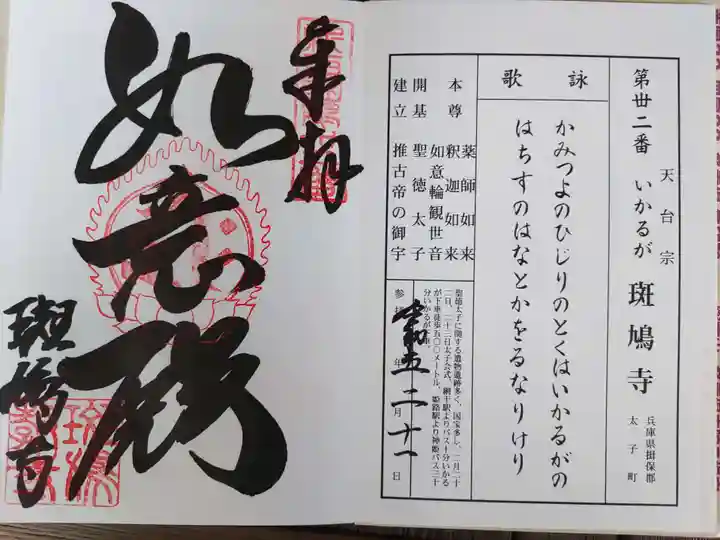 第卅二番 いかるが 斑鳩寺
天台宗
兵庫県揖保郡
太子町
詠歌
かみつよのひじりのとくはいかるがの
はちすのはなとかをるなりけり
本尊 薬師如来
釈迦如来
如意輪観世音
開基 聖徳太子
建立 推古帝の御宇
聖徳太子に関する遺物遺跡多く、国宝多し、二月二十
二日、二十三日太子会式、網干駅よりバス十分いかる
が下車徒歩五〇〇メートル、姫路駅より神姫バス三十
分いかるが下車。
令和五年二月二十一日
奉拝
如意殿
斑鳩寺